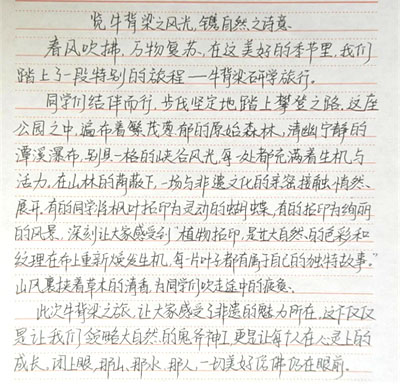 览牛背梁之风光，镌自然之诗意
春风吹拂，万物复苏，在这美好的季节里，我们
踏上了一段特别的旅程——牛背梁研学旅行。
同学们结伴而行，步伐坚定地踏上攀登之路。这座
公园之中，遍布着繁茂葱郁的原始森林、清幽宁静的
潭溪瀑布、别具一格的峡谷风光，每一处都充满着生机与
活力。在山林的荫蔽下，一场与非遗文化的亲密接触悄然
展开。有的同学将枫叶拓印为灵动的蝴蝶，有的拓印为绚丽
的风景，深刻让大家感受到“植物拓印，是让大自然的色彩和
纹理在布上重新焕发生机，每一片叶子都有属于自己的独特故事。”
山风裹挟着草木的清香，为同学们吹走途中的疲惫。
此次牛背梁之旅，让大家感受了非遗的魅力所在，这不仅仅
是让我们领略大自然的鬼斧神工，更是让每个人在心灵上的
成长，闭上眼，那山、那水、那人，一切美好仿佛仍在眼前。